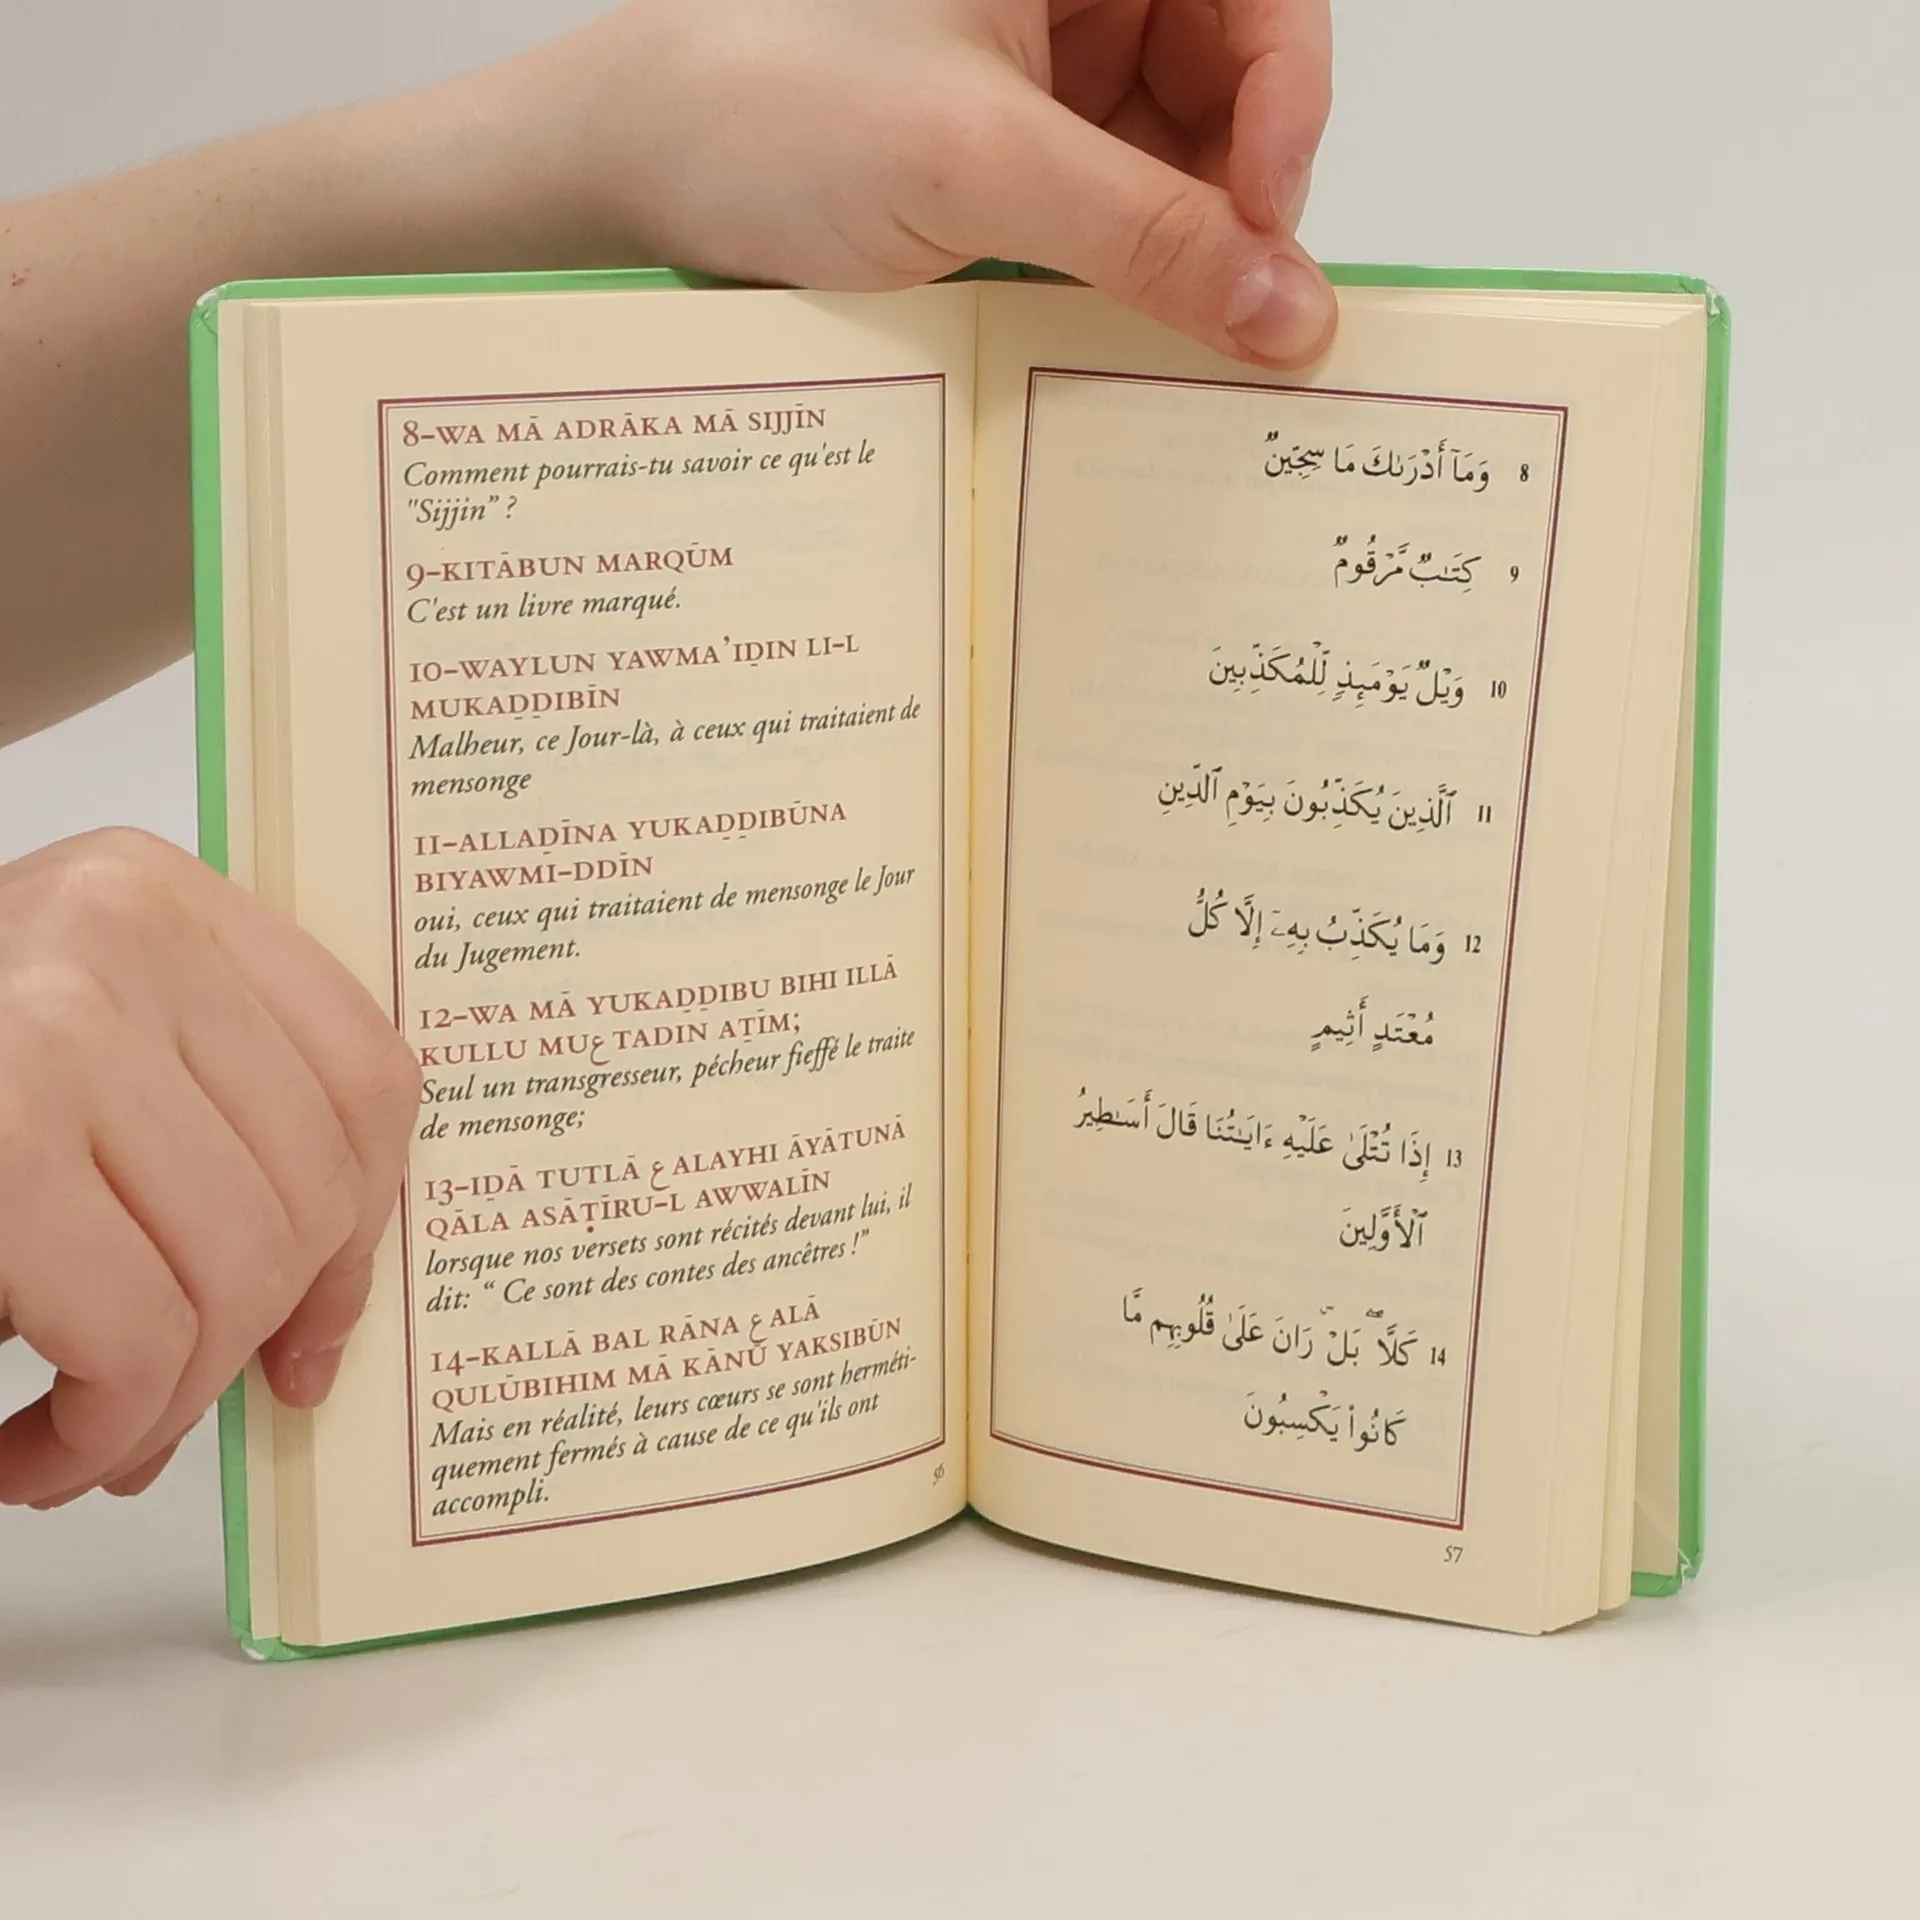 8-WA MĀ ADRĀKA MĀ SIJJĪN
Comment pourrais-tu savoir ce qu'est le
"Sijjin” ?
9-KITĀBUN MARQŪM
C'est un livre marqué.
10-WAYLUN YAWMA’IḎIN LI-L
MUKAḎḎIBĪN
Malheur, ce Jour-là, à ceux qui traitaient de
mensonge
11-ALLAḎĪNA YUKAḎḎIBŪNA
BIYAWMI-DDĪN
oui, ceux qui traitaient de mensonge le Jour
du Jugement.
12-WA MĀ YUKAḎḎIBU BIHI ILLĀ
KULLU MUع TADIN AṮĪM;
Seul un transgresseur, pécheur fieffé le traite
de mensonge;
13-IḎĀ TUTLĀ ع ALAYHI ĀYĀTUNĀ
QĀLA ASĀṬĪRU-L AWWALĪN
lorsque nos versets sont récités devant lui, il
dit: “ Ce sont des contes des ancêtres !”
14-KALLĀ BAL RĀNA ع ALĀ
QULŪBIHIM MĀ KĀNŪ YAKSIBŪN
Mais en réalité, leurs cœurs se sont herméti-
quement fermés à cause de ce qu'ils ont
accompli.
56
8 وَمَآ أَدْرَىٰكَ مَا سِجِّينٌ
9 كِتَـٰبٌ مَّرْقُومٌ
10 وَيْلٌ يَوْمَئِذٍ لِّلْمُكَذِّبِينَ
11 ٱلَّذِينَ يُكَذِّبُونَ بِيَوْمِ ٱلدِّينِ
12 وَمَا يُكَذِّبُ بِهِۦٓ إِلَّا كُلُّ
مُعْتَدٍ أَثِيمٍ
13 إِذَا تُتْلَىٰ عَلَيْهِ ءَايَـٰتُنَا قَالَ أَسَـٰطِيرُ
ٱلْأَوَّلِينَ
14 كَلَّا ۖ بَلْ ۜ رَانَ عَلَىٰ قُلُوبِهِم مَّا
كَانُوا۟ يَكْسِبُونَ
57